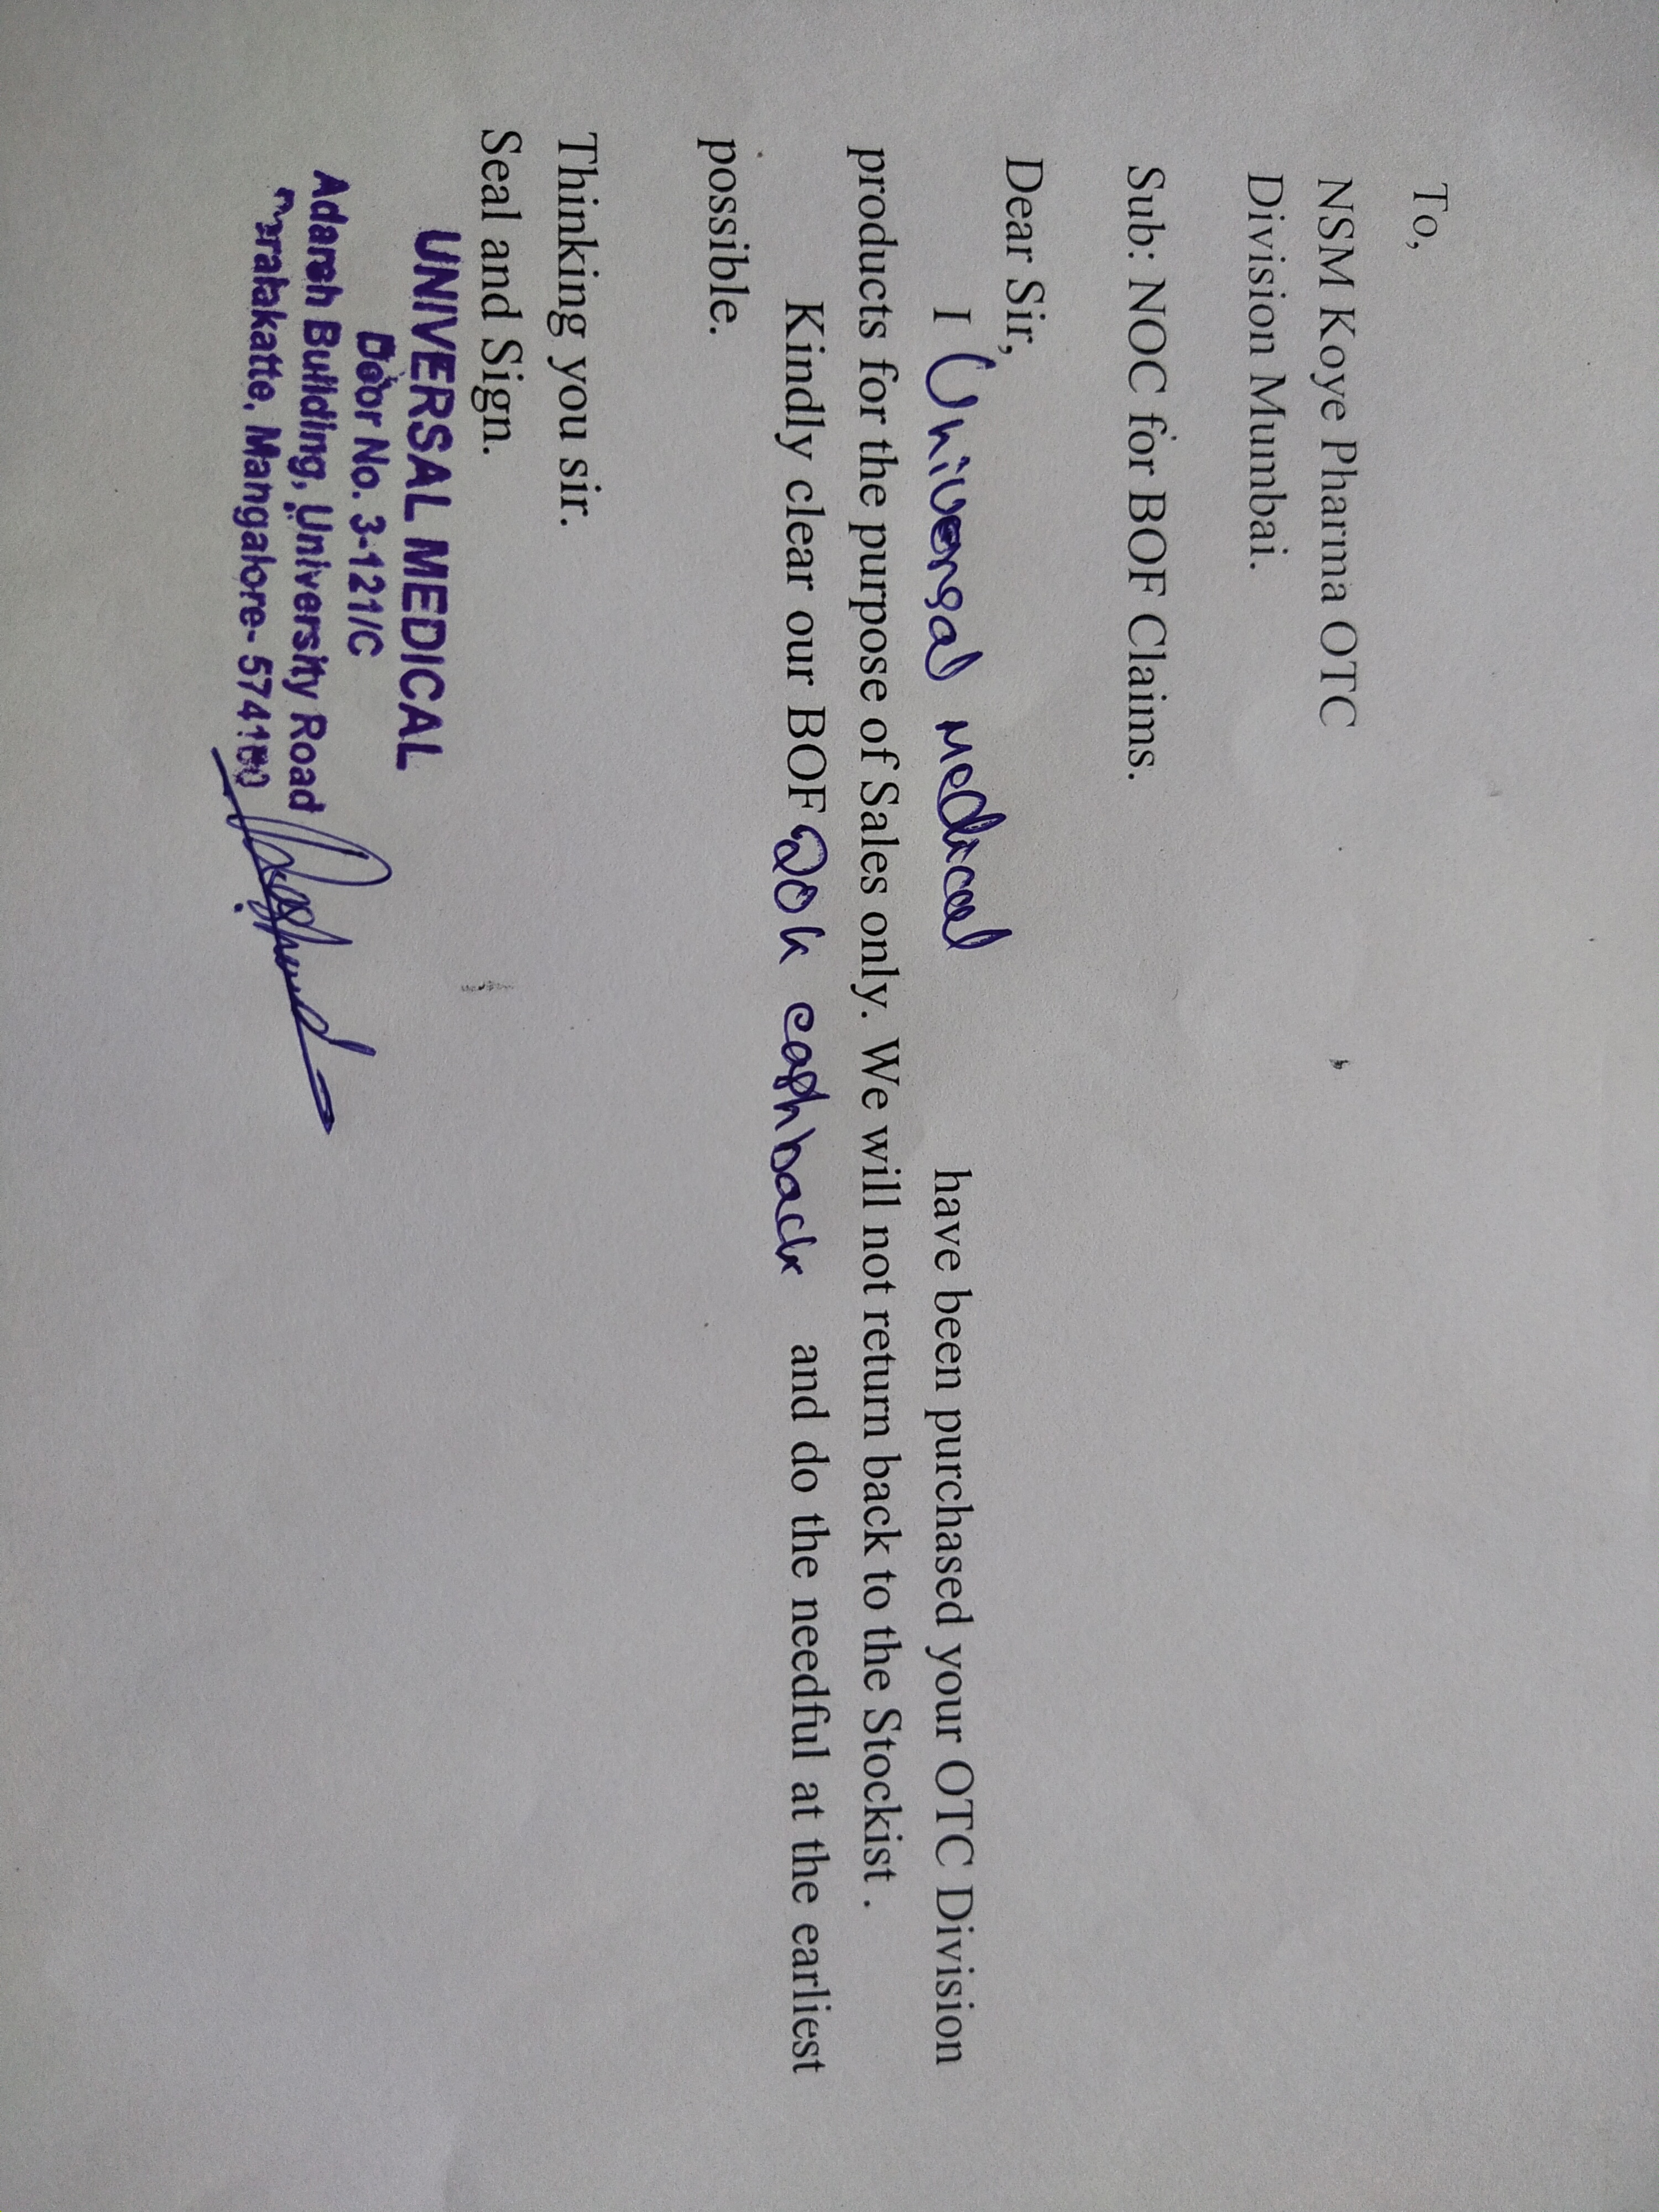 To,
NSM Koye Pharma OTC
Division Mumbai.
Sub: NOC for BOF Claims.
Dear Sir,
I Universal Medical have been purchased your OTC Division
products for the purpose of Sales only. We will not return back to the Stockist .
Kindly clear our BOF 20k cashback and do the needful at the earliest
possible.
Thinking you sir.
Seal and Sign.
UNIVERSAL MEDICAL
Door No. 3-121/C
Adarsh Building, University Road
Mangalore-